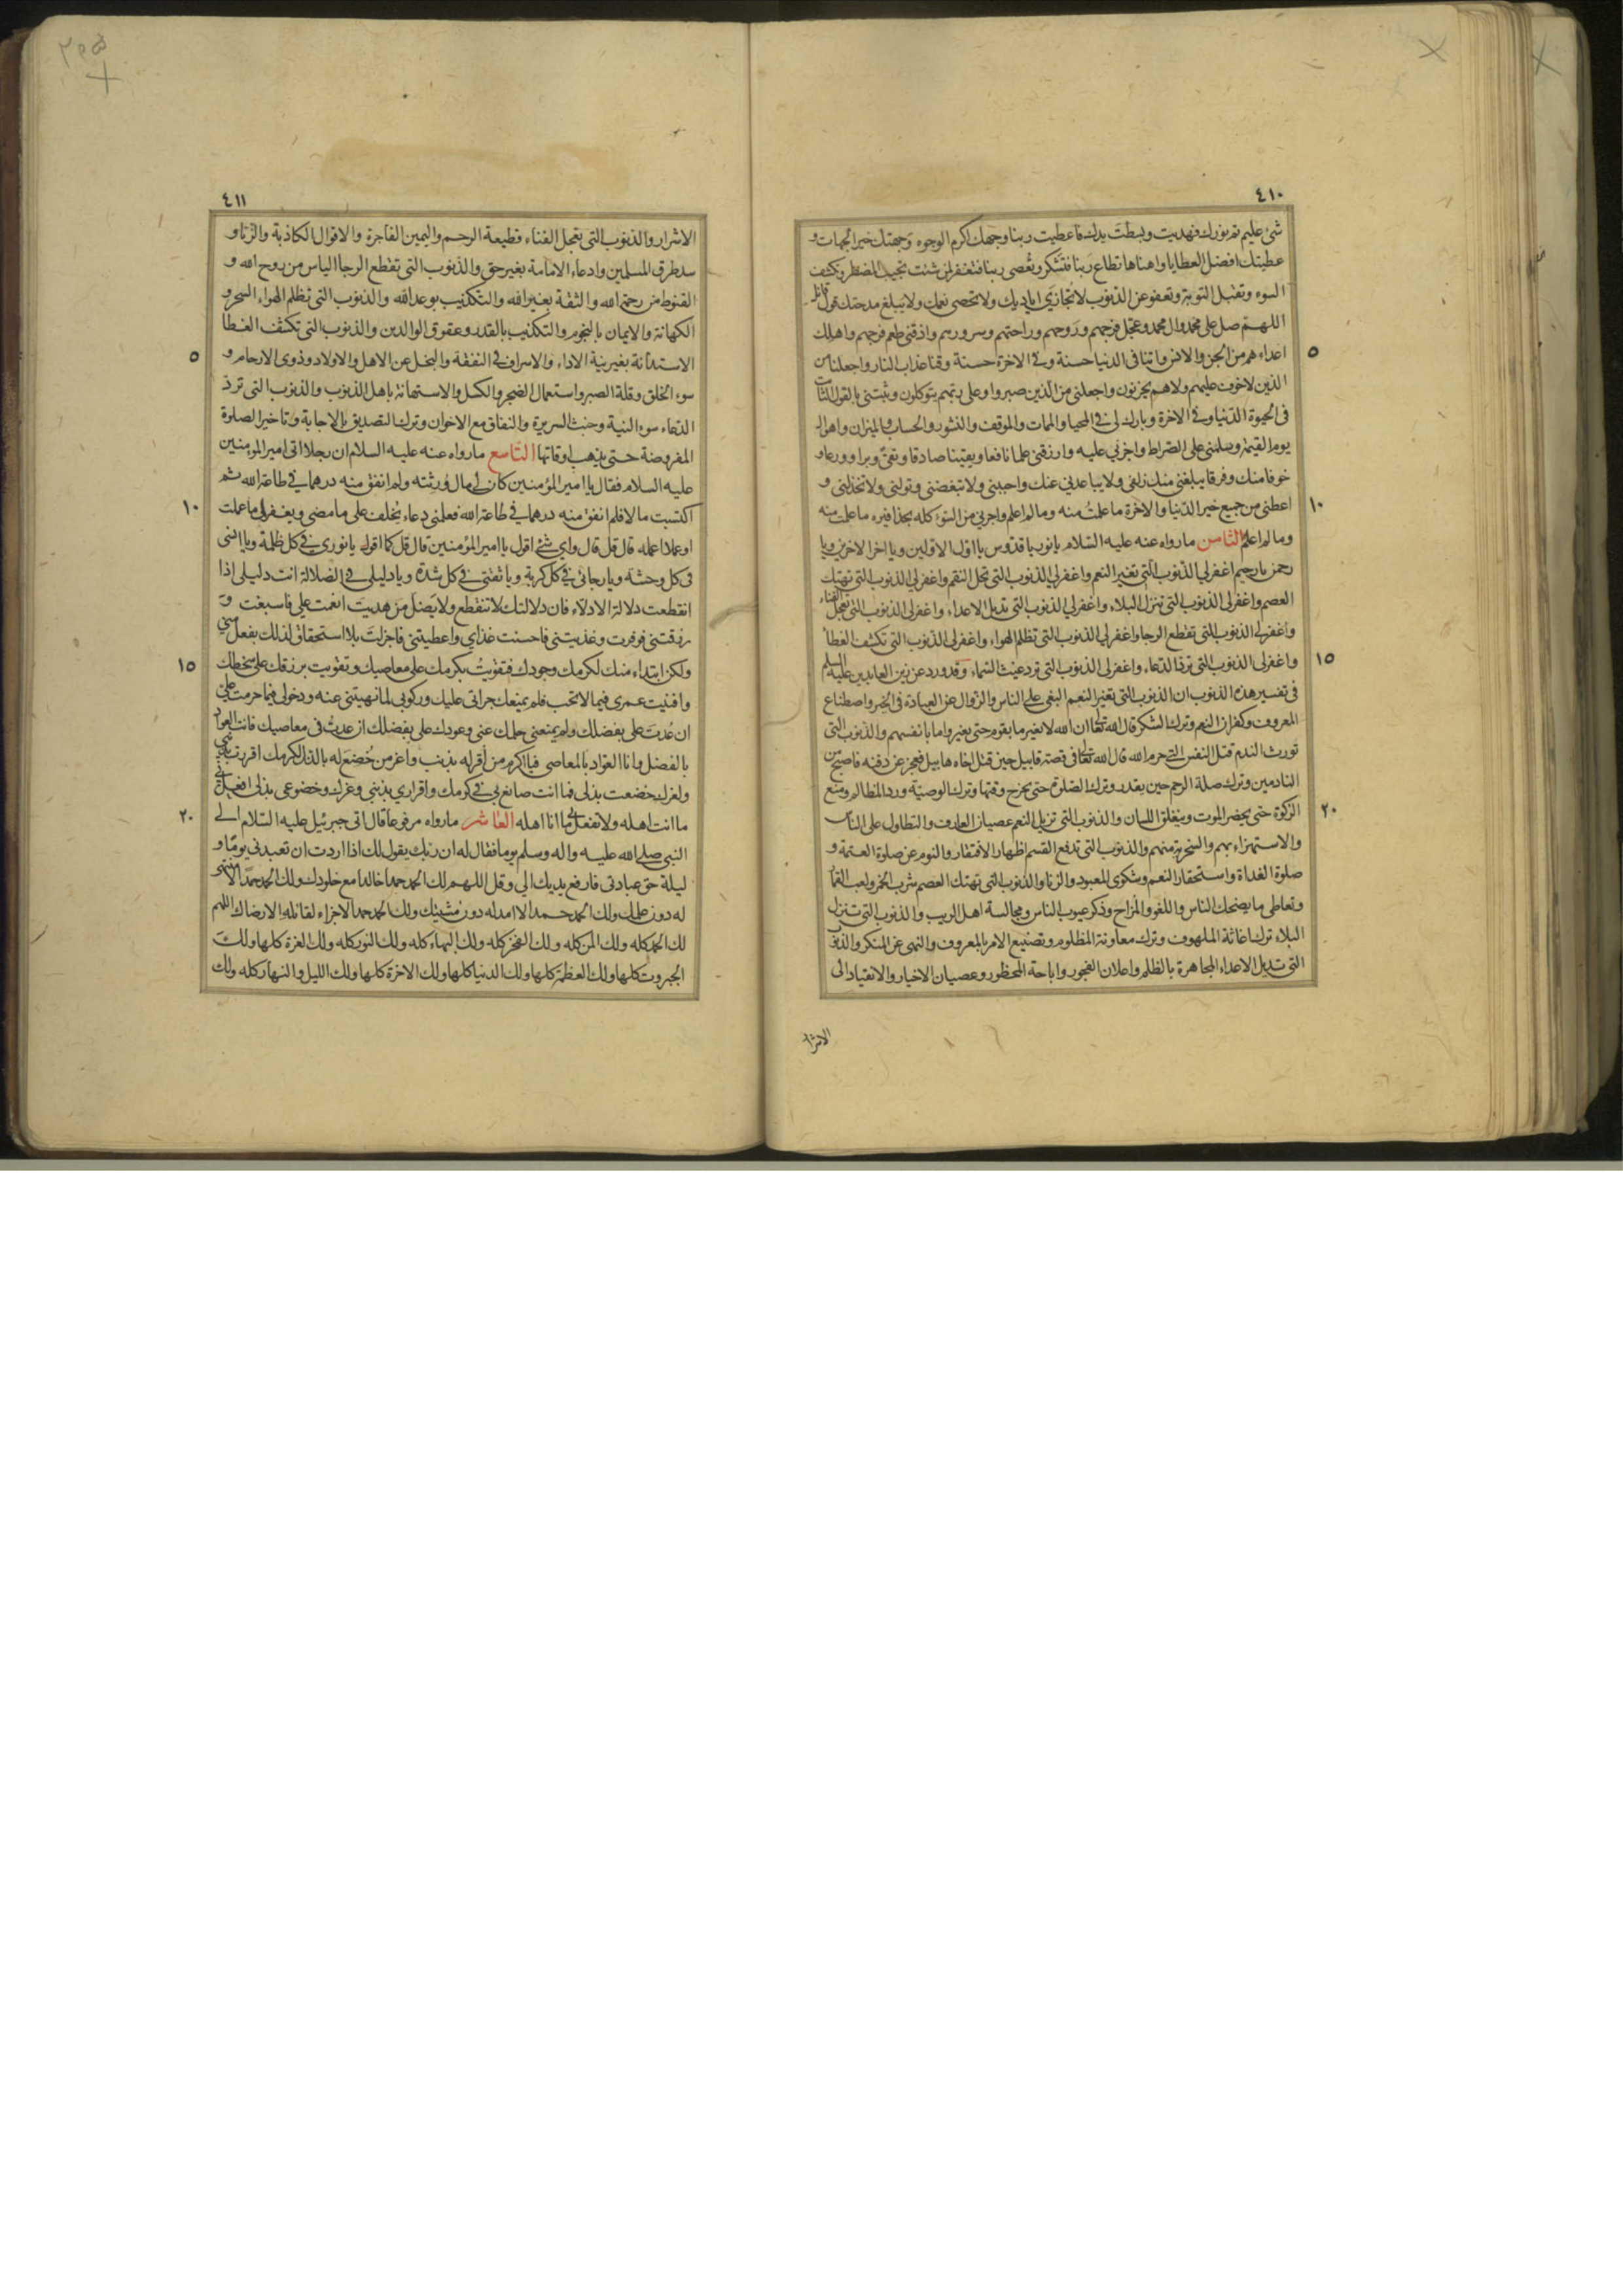 ٤١٠
شئ عليم تم نورك فهديت وبسطت يدك فاعطيت ربنا وجهك اكرم الوجوه وجهتك خير الجهات و
عطيتك افضل العطايا واهناها تطاع ربنا فتشكر وتعصى ربنا فتغفر لمن شئت تجيب المضطر وتكشف
السوء وتقبل التوبة وتعفو عن الذنوب لا تجازى اياديك ولا تحصى نعمك ولا يبلغ مدحتك قول قائل
اللهم صل على محمد وال محمد وعجل فرجهم وروحهم وراحتهم وسرورهم واذقنى طعم فرجهم واهلك
٥
اعداءهم من الجن والانس واتنا فى الدنيا حسنة وفى الاخرة حسنة وقنا عذاب النار واجعلنا من
الذين لا خوف عليهم ولا هم يحزنون واجعلنى من الذين صبروا وعلى ربهم يتوكلون وثبتنى بالقول الثابت
فى الحيوة الدنيا وفى الاخرة وبارك لى فى المحيا والممات والموقف والنشور والحساب والميزان واهوال
يوم القيمة وسلمنى على الصراط واجزنى عليه وارزقنى علما نافعا ويقينا صادقا وتقى وبرا وورعا و
خوفا منك وفرقا يبلغنى منك زلفى ولا يباعدنى عنك واحببنى ولا تبغضنى وتولنى ولا تخذلنى و
١٠
اعطنى من جميع خير الدنيا والاخرة ما علمت منه وما لم اعلم واجرنى من السوء كله بحذافيره ما علمت منه
وما لم اعلم الثامن ما رواه عنه عليه السلام يا نور يا قدوس يا اول الاولين ويا اخر الاخرين ويا
رحمن يا رحيم اغفر لى الذنوب التى تغير النعم واغفر لى الذنوب التى تحل النقم واغفر لى الذنوب التى تهتك
العصم واغفر لى الذنوب التى تنزل البلاء واغفر لى الذنوب التى تديل الاعداء واغفر لى الذنوب التى تعجل الفناء
واغفر لى الذنوب التى تقطع الرجا واغفر لى الذنوب التى تظلم الهواء واغفر لى الذنوب التى تكشف الغطا
١٥
واغفر لى الذنوب التى ترد الدعاء واغفر لى الذنوب التى ترد غيث السماء وقد ورد عن زين العابدين عليه السلم
فى تفسير هذه الذنوب ان الذنوب التى تغير النعم البغى على الناس والزوال عن العبادة فى الخير واصطناع
المعروف وكفران النعم وترك الشكر قال الله تعالى ان الله لا يغير ما بقوم حتى يغيروا ما بانفسهم والذنوب التى
تورث الندم قتل النفس التى حرم الله قال الله تعالى فى قصة قابيل حين قتل اخاه هابيل فعجز عن دفنه فاصبح من
النادمين وترك صلة الرحم حين يقدر وترك الصلوة حتى يخرج وقتها وترك الوصية ورد المظالم ومنع
٢٠
الزكوة حتى يحضر الموت وينغلق اللسان والذنوب التى تزيل النعم عصيان العارف والتطاول على الناس
والاستهزاء بهم والسخرية منهم والذنوب التى تدفع القسم اظهار الافتقار والنوم عن صلوة العتمة و
صلوة الغداة واستحقار النعم وشكوى المعبود والزنا والذنوب التى تهتك العصم شرب الخمر ولعب القمار
وتعاطى ما يضحك الناس واللغو والمزاح وذكر عيوب الناس ومجالسة اهل الريب والذنوب التى تنزل
البلاء ترك اغاثة الملهوف وترك معاونة المظلوم وتضييع الامر بالمعروف والنهى عن المنكر والذنوب
التى تديل الاعداء المجاهرة بالظلم واعلان الفجور واباحة المحظور وعصيان الاخيار والانقياد الى
الاشرار
٤١١
الاشرار والذنوب التى تعجل الفناء قطيعة الرحم واليمين الفاجرة والاقوال الكاذبة والزنا و
سد طرق المسلمين وادعاء الامامة بغير حق والذنوب التى تقطع الرجا الياس من روح الله و
القنوط من رحمة الله والثقة بغير الله والتكذيب بوعد الله والذنوب التى تظلم الهواء السحر و
الكهانة والايمان بالنجوم والتكذيب بالقدر وعقوق الوالدين والذنوب التى تكشف الغطا
٥
الاستدانة بغير نية الاداء والاسراف فى النفقة والبخل عن الاهل والاولاد وذوى الارحام و
سوء الخلق وقلة الصبر واستعمال الضجر والكسل والاستهانة باهل الدين والذنوب التى ترد
الدعاء سوء النية وخبث السريرة والنفاق مع الاخوان وترك التصديق بالاجابة وتاخير الصلوة
المفروضة حتى يذهب اوقاتها التاسع ما رواه عنه عليه السلام ان رجلا اتى امير المؤمنين
عليه السلام فقال يا امير المؤمنين كان لى مال ورثته ولم انفق منه درهما فى طاعة الله ثم
١٠
اكتسبت مالا فلم انفق منه درهما فى طاعة الله فعلمنى دعاء يخلف على ما مضى ويغفر لى ما عملت
او عملا اعمله قال قل قال واى شئ اقول يا امير المؤمنين قال قل كما اقول يا نورى فى كل ظلمة ويا انسى
فى كل وحشة ويا رجائى فى كل كربة ويا ثقتى فى كل شدة ويا دليلى فى الضلالة انت دليلى اذا
انقطعت دلالة الادلاء فان دلالتك لا تنقطع ولا يضل من هديت انعمت على فاسبغت و
رزقتنى فوفرت وغذيتنى فاحسنت غذاى واعطيتنى فاجزلت بلا استحقاق لذلك بفعل منى
١٥
ولكن ابتداء منك لكرمك وجودك فتقويت بكرمك على معاصيك وتقويت برزقك على سخطك
وافنيت عمرى فيما لا تحب فلم يمنعك جراتى عليك وركوبى لما نهيتنى عنه ودخولى فيما حرمت على
ان عدت على بفضلك ولم يمنعنى حلمك عنى وعودك على بفضلك ان عدت فى معاصيك فانت العواد
بالفضل وانا العواد بالمعاصى فيا اكرم من اقر له بذنب واعز من خضع له بالذل لكرمك اقررت بذنبى
ولعزك خضعت بذلى فما انت صانع بى فى كرمك واقرارى بذنبى وعزك وخضوعى بذلى افعل بى
٢٠
ما انت اهله ولا تفعل بى ما انا اهله العاشر ما رواه مرفوعا قال اتى جبرئيل عليه السلام الى
النبى صلى الله عليه واله وسلم يوما فقال له ان ربك يقول لك اذا اردت ان تعبدنى يوما و
ليلة حق عبادتى فارفع يديك الى وقل اللهم لك الحمد حمدا خالدا مع خلودك ولك الحمد حمدا لا منتهى
له دون علمك ولك الحمد حمدا لا امد له دون مشيتك ولك الحمد حمدا لا جزاء لقائله الا رضاك اللهم
لك الحمد كله ولك المن كله ولك الفخر كله ولك البهاء كله ولك النور كله ولك العزة كلها ولك
الجبروت كلها ولك العظمة كلها ولك الدنيا كلها ولك الاخرة كلها ولك الليل والنهار كله ولك